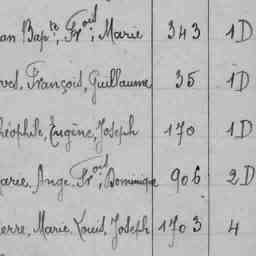 an Bapte, Frois, Marie 343 1D
ves, François, Guillaume 35 1D
héophile, Eugène, Joseph 170 1D
arie, Ange, Frois, Dominique 906 2D
erre, Marie, Louis, Joseph 1703 4